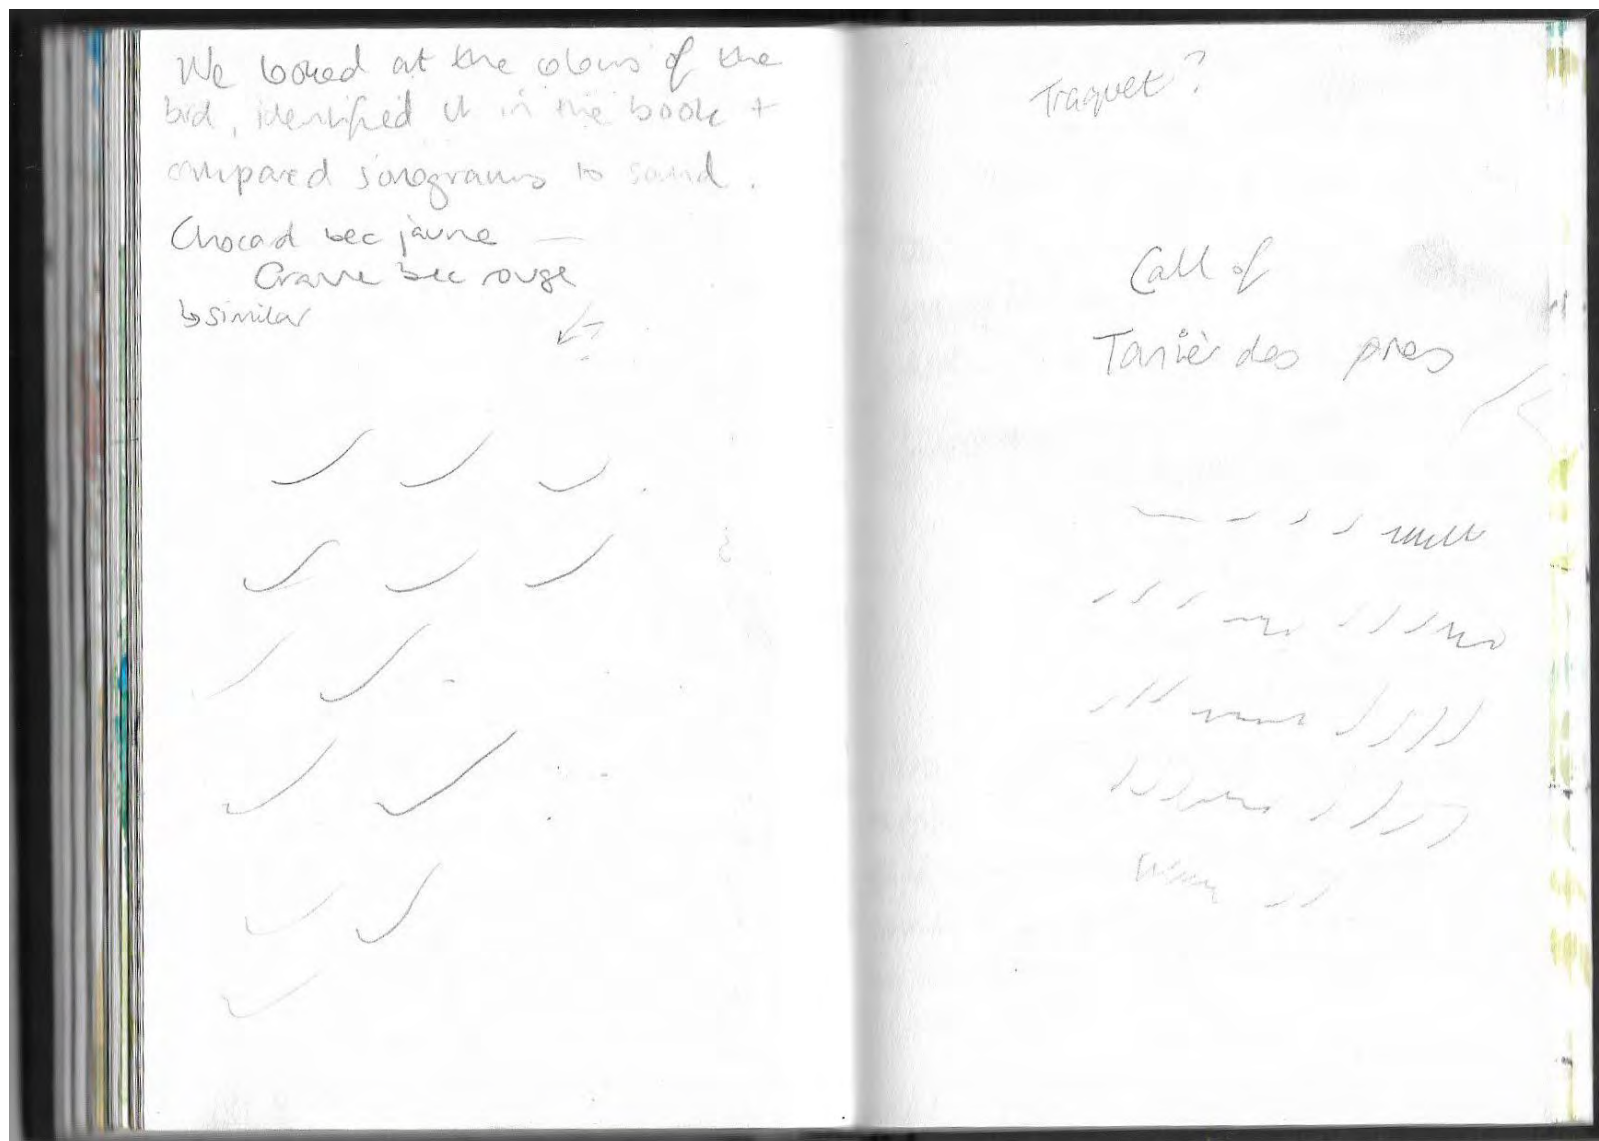 We looked at the colours of the
bird, identified it in the book +
compared sonograms to sound.
Chocad bec jaune —
Crave bec rouge
↳ similar
Traquet?
Call of
Tarier des pres